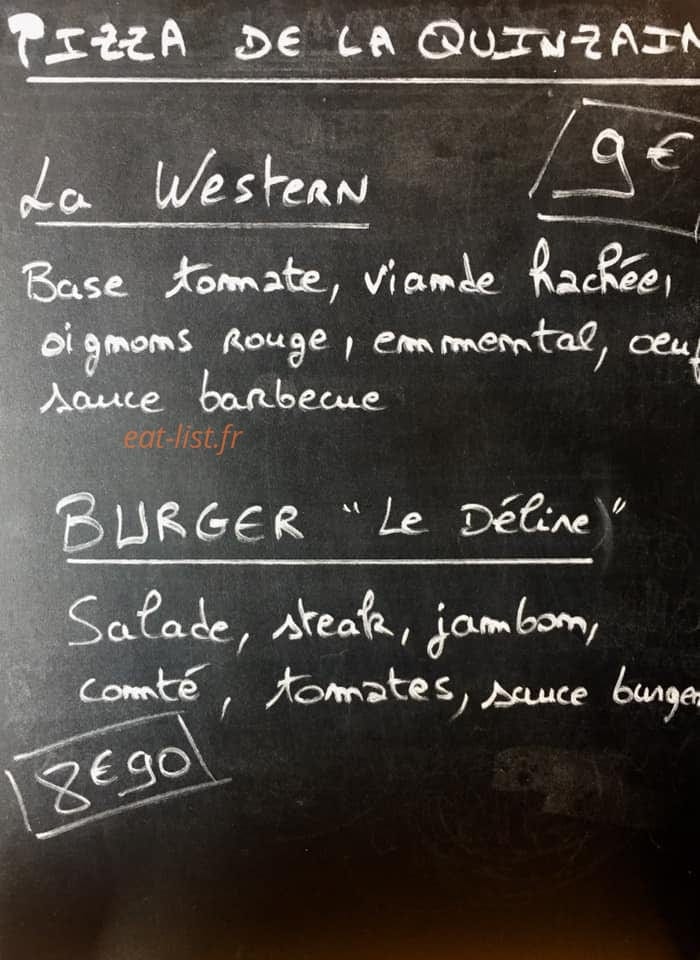 PIZZA DE LA QUINZAIN
9€
La Western
Base tomate, viande hachée,
oignons rouge, emmental, oeuf
sauce barbecue
eat-list.fr
BURGER "Le Délire"
Salade, steak, jambon,
comté, tomates, sauce burger
8€90